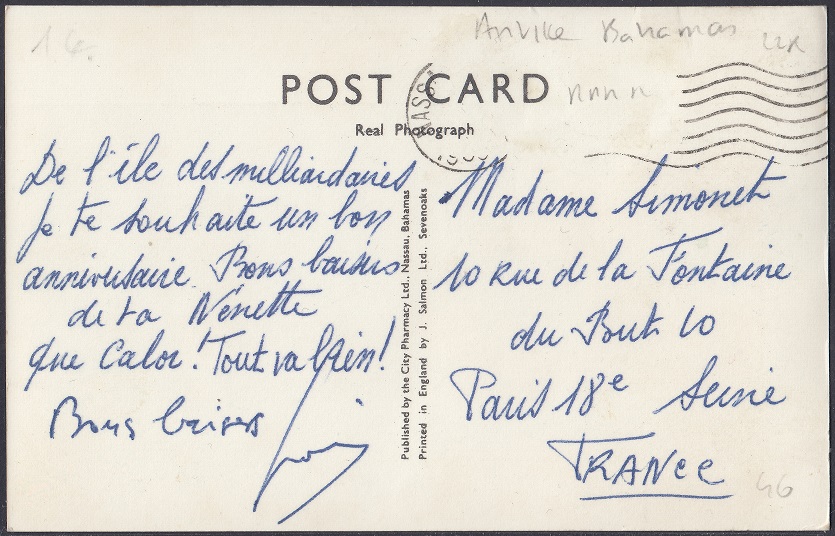 Bahamas
POST CARD
Real Photograph
NASS
De l'île des milliardaires
Je te souhaite un bon
anniversaire Bons baisers
de ta Nénette
que calor! Tout va bien!
Bons baisers
Published by the City Pharmacy Ltd., Nassau, Bahamas
Printed in England by J. Salmon Ltd., Sevenoaks
Madame Simonet
10 Rue de la Fontaine
du But 10
Paris 18e Seine
FRANCE
46